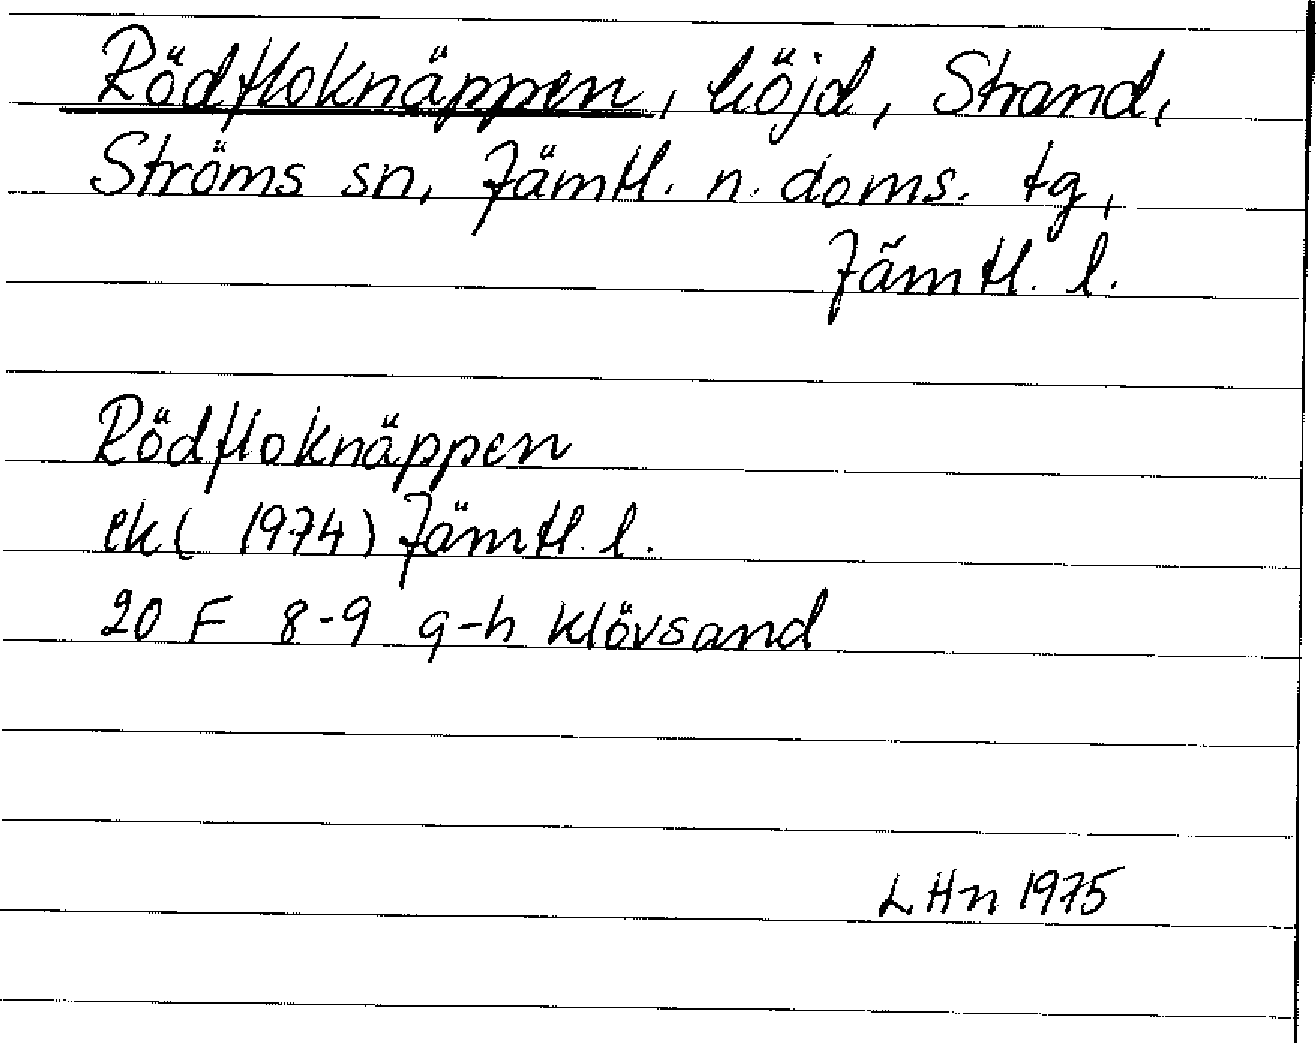 Rödfloknäppen, höjd, Strand,
Ströms sn, Jämtl. n. doms. tg,
Jämtl. l.
Rödfloknäppen
ek (1974) Jämtl. l.
20 F 8-9 g-h Klövsand
LHn 1975